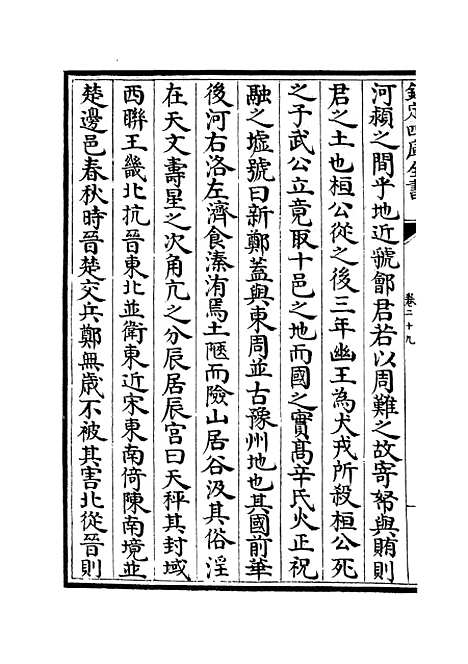 欽定四庫全書
卷二十九
河潁之間乎地近虢鄶君若以周難之故寄帑與賄則
君之土也桓公從之後三年幽王為犬戎所殺桓公死
之子武公立竟取十邑之地而國之實髙辛氏火正祝
融之墟號曰新鄭葢與東周並古豫州地也其國前華
後河右洛左濟食溱洧焉土陿而險山居谷汲其俗淫
在天文壽星之次角亢之分辰居辰宮曰天秤其封域
西聯王畿北抗晉東北並衛東近宋東南倚陳南境並
楚邊邑春秋時晉楚交兵鄭無歲不被其害北從晉則